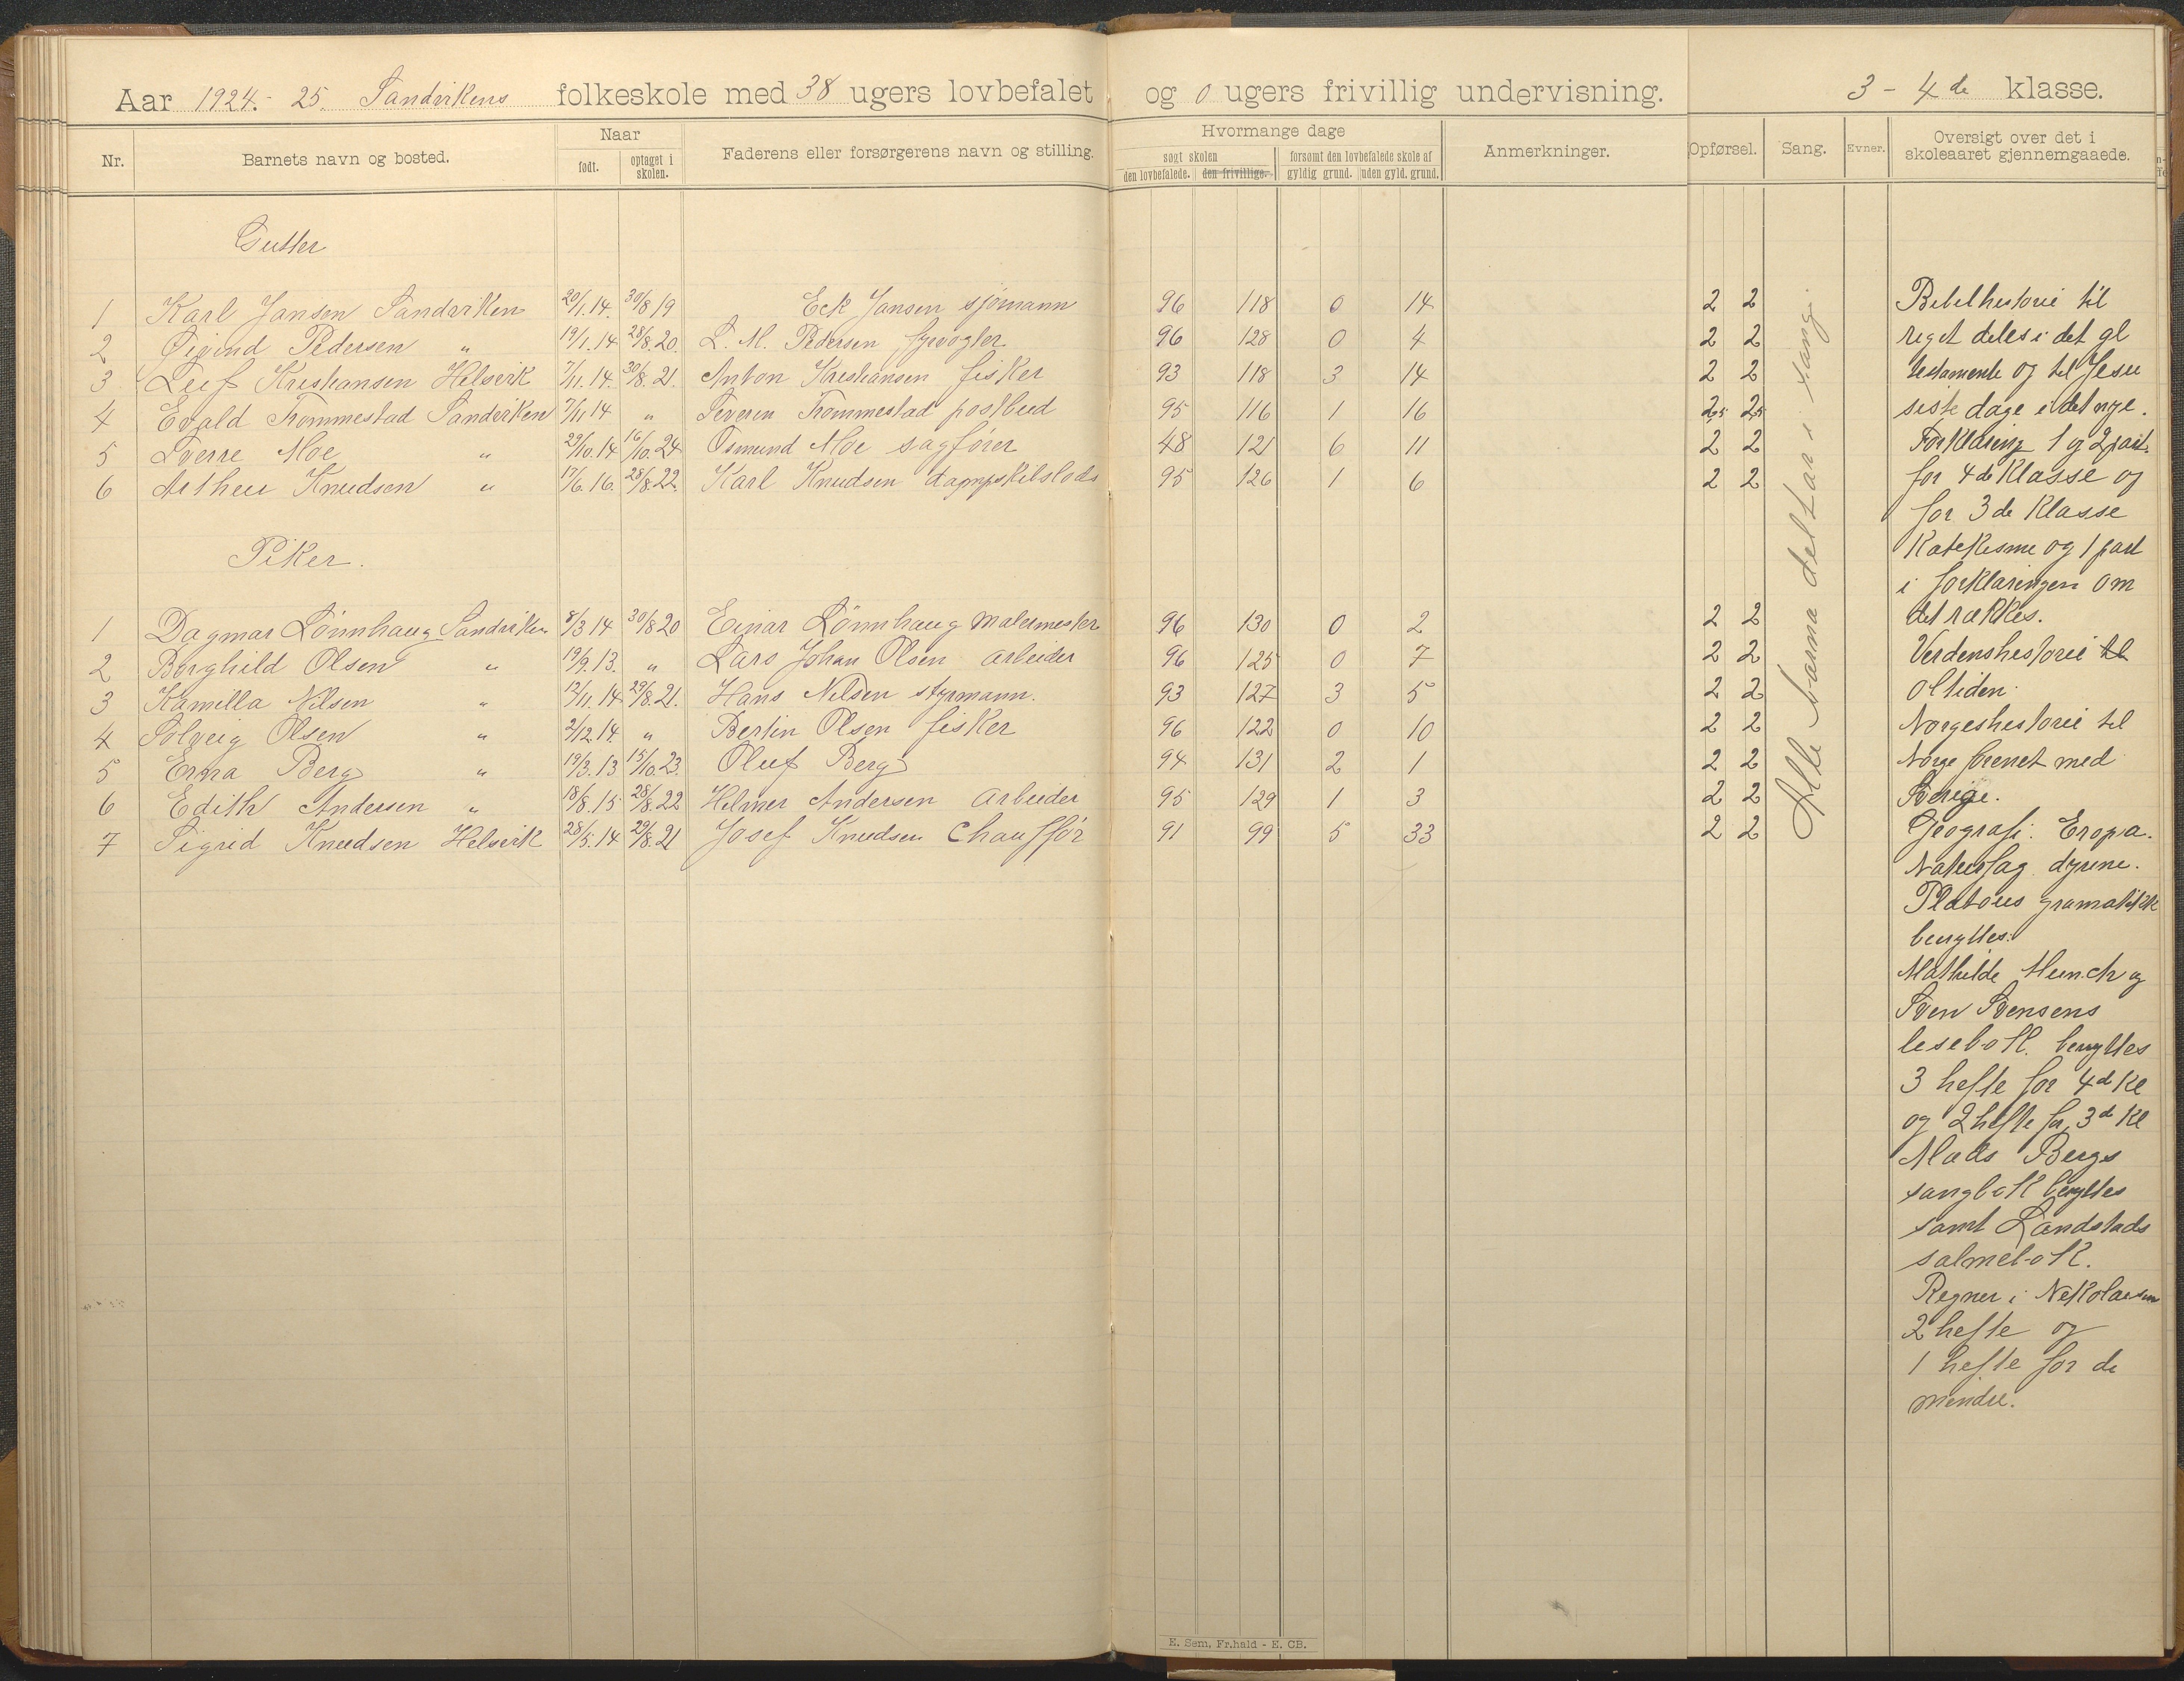 Aar 1924.-25. Sandvikens folkeskole med 38 ugers lovbefalet og 0 ugers frivillig undervisning. 3-4de klasse.
Nr. Barnets navn og bosted. Naar født. optaget i skolen. Faderens eller forsørgerens navn og stilling. Hvormange dage søgt skolen den lovbefalede. den frivillige. forsømt den lovbefalede skole af gyldig grund. uden gyld. grund. Anmerkninger. Opførsel. Sang. Evner. Oversigt over det i skoleaaret gjennemgaaede.
Gutter
1 Karl Jansen Sandviken 20/1.14. 30/8 19 Eck Jansen sjømann 96 118 0 14 2 2
2 Øivind Pedersen " 19/1.14 28/8.20. L. M. Pedersen fyrvogter 96 128 0 4 2 2
3 Leif Kristiansen Helsvik 7/11.14. 30/8.21. Anton Kristiansen fisker 93 118 3 14 2 2
4 Evald Trommestad Sandviken 7/11 14 " Severin Trommestad postbud 95 116 1 16 2,5 2,5
5 Sverre Moe " 29/10.14 16/10.24 Osmund Moe sagfører 48 121 6 11 2 2
6 Arthur Knudsen " 17/6.16. 28/8.22. Karl Knudsen dampskibslods 95 126 1 6 2 2
Piker.
1 Dagmar Lønnhaug Sandviken 8/3 14 30/8 20 Einar Lønnhaug malermester 96 130 0 2 2 2
2 Borghild Olsen " 19/9.13. " Lars Johan Olsen arbeider 96 125 0 7 2 2
3 Kamilla Nilsen " 12/11.14 29/8.21. Hans Nilsen styrmann. 93 127 3 5 2 2
4 Solveig Olsen " 2/12 14. " Bertin Olsen fisker 96 122 0 10 2 2
5 Erna Berg " 19/3.13 15/10.23. Oluf Berg 94 131 2 1 2 2
6 Edith Andersen " 18/8.15 28/8.22 Helmer Andersen arbeider 95 129 1 3 2 2
7 Sigrid Knudsen Helsvik 28/5.14 29/8.21 Josef Knudsen Chauffør 91 99 5 33 2 2
Alle barna deltar i sang.
Bibelhistorie til
riget deles i det gl
testamente og til Jesu
siste dage i det nye.
Forklaring 1 og 2 part.
for 4de Klasse og
for 3de Klasse
Katekisme og 1 part
i forklaringen om
det rækkes.
Verdenshistorie til
oltiden.
Norgeshistorie til
Norge forenet med
Sverige.
Geografi: Eropa.
Naturfag dyrene.
Platous gramatikk
benyttes.
Mathilde Munch og
Sven Svensens
lesebok benyttes
3 hefte for 4d Kl
og 2 hefte for 3d Kl
Mads Bergs
sangbok benyttes
samt Landstads
salmebok.
Regner i Nikolaisen
2 hefte og
1 hefte for de
mindre.
E. Sem, Fr.hald - E. CB.